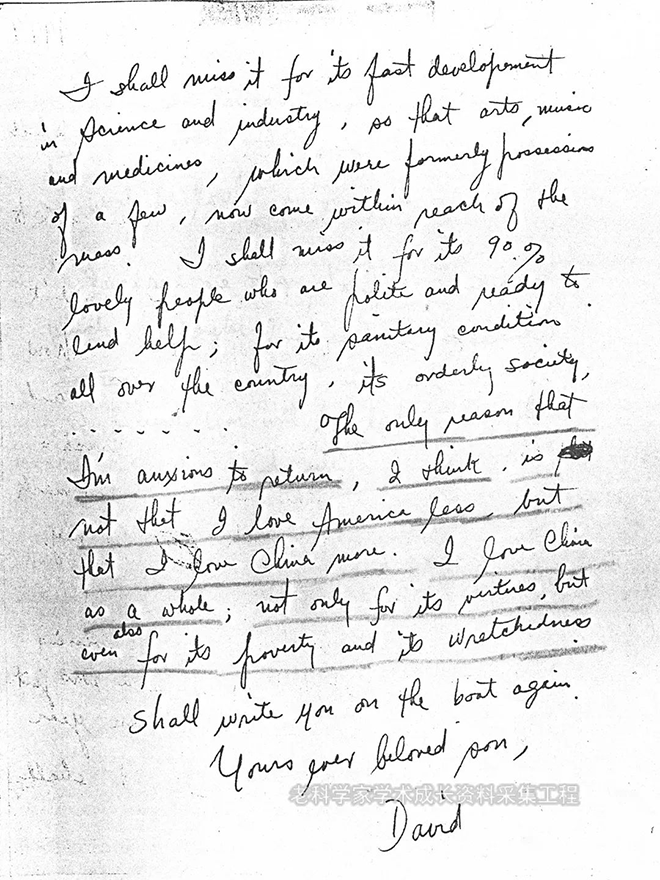 I shall miss it for its fast developement
in science and industry, so that arts, music
and medicines, which were formerly possessions
of a few, now come within reach of the
mass. I shall miss it for its 90%
lovely people who are polite and ready to
lend help; for its sanitary condition
all over the country, its orderly society,
. - - - - - . The only reason that
I'm anxious to return, I think, is
not that I love America less, but
that I love China more. I love China
as a whole; not only for its virtues, but
even also for its poverty and its wretchedness.
Shall write you on the boat again.
Yours ever beloved son,
老科学家学术成长资料采集工程
David